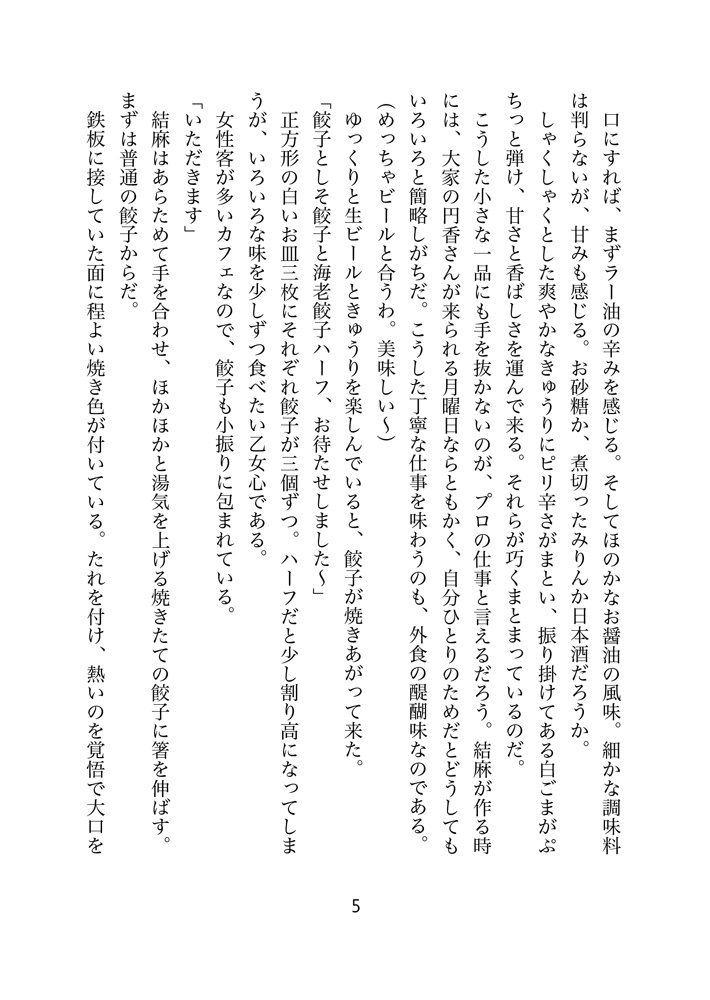 口にすれば、まずラー油の辛みを感じる。そしてほのかなお醤油の風味。細かな調味料
は判らないが、甘みも感じる。お砂糖か、煮切ったみりんか日本酒だろうか。
　しゃくしゃくとした爽やかなきゅうりにピリ辛さがまとい、振り掛けてある白ごまがぷ
ちっと弾け、甘さと香ばしさを運んで来る。それらが巧くまとまっているのだ。
　こうした小さな一品にも手を抜かないのが、プロの仕事と言えるだろう。結麻が作る時
には、大家の円香さんが来られる月曜日ならともかく、自分ひとりのためだとどうしても
いろいろと簡略しがちだ。こうした丁寧な仕事を味わうのも、外食の醍醐味なのである。
（めっちゃビールと合うわ。美味しい～）
　ゆっくりと生ビールときゅうりを楽しんでいると、餃子が焼きあがって来た。
「餃子としそ餃子と海老餃子ハーフ、お待たせしました～」
　正方形の白いお皿三枚にそれぞれ餃子が三個ずつ。ハーフだと少し割り高になってしま
うが、いろいろな味を少しずつ食べたい乙女心である。
　女性客が多いカフェなので、餃子も小振りに包まれている。
「いただきます」
　結麻はあらためて手を合わせ、ほかほかと湯気を上げる焼きたての餃子に箸を伸ばす。
まずは普通の餃子からだ。
　鉄板に接していた面に程よい焼き色が付いている。たれを付け、熱いのを覚悟で大口を
5